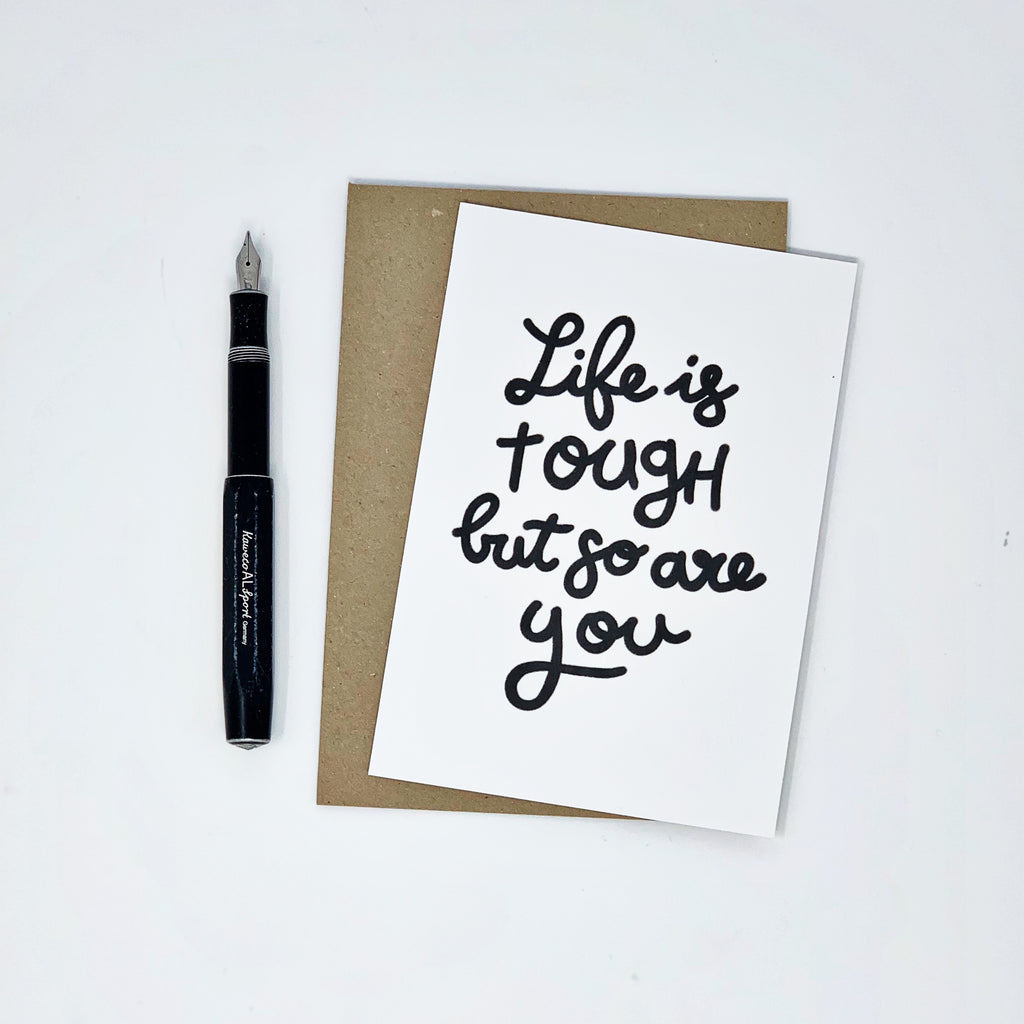 Life is
TOUGH
but so are
you
Kaweco AL Sport Germany